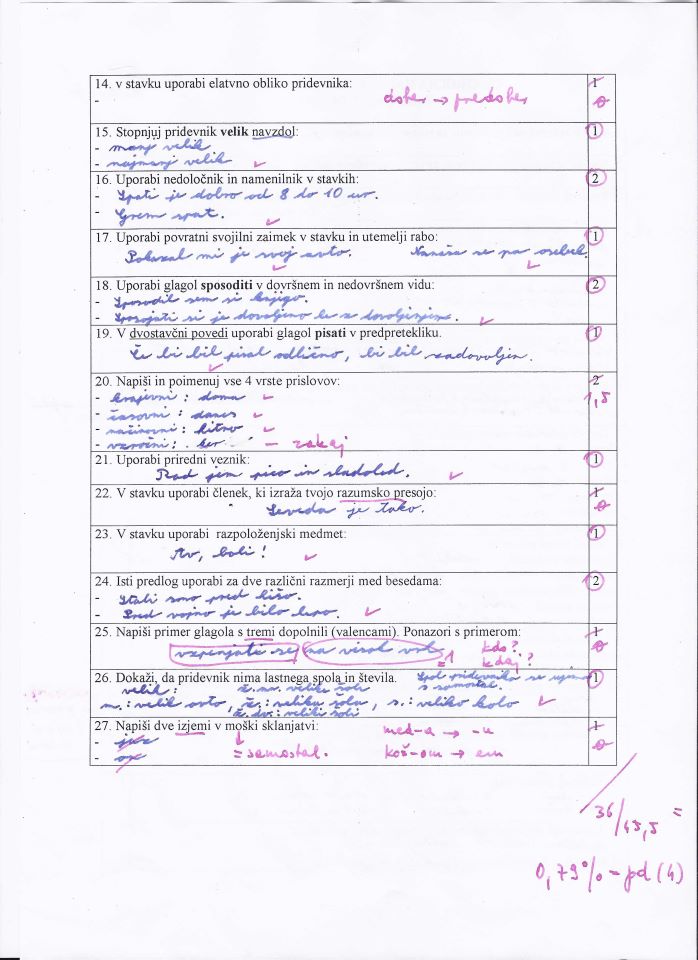 14. v stavku uporabi elatvno obliko pridevnika: 1
- dober → predober 0
15. Stopnjuj pridevnik velik navzdol: 1
- manj velik
- najmanj velik
16. Uporabi nedoločnik in namenilnik v stavkih: 2
- Spati je dobro od 8 do 10 ur.
- Grem spat.
17. Uporabi povratni svojilni zaimek v stavku in utemelji rabo: 1
Pokazal mi je svoj avto. Nanaša se na osebek.
18. Uporabi glagol sposoditi v dovršnem in nedovršnem vidu: 2
- Sposodil sem si knjigo.
- Sposojati si je dovoljeno le z dovoljenjem.
19. V dvostavčni povedi uporabi glagol pisati v predpretekliku. 1
Če bi bil pisal odlično, bi bil zadovoljen.
20. Napiši in poimenuj vse 4 vrste prislovov: 2
- krajevni : doma 1,5
- časovni : danes
- načinovni : hitro
- vzročni : ker – zakaj
21. Uporabi priredni veznik: 1
Rad jem pico in sladoled.
22. V stavku uporabi členek, ki izraža tvojo razumsko presojo: 1
Seveda je tako. 0
23. V stavku uporabi razpoloženjski medmet: 1
Av, boli!
24. Isti predlog uporabi za dve različni razmerji med besedama: 2
- Stali smo pred hišo.
- Pred vojno je bilo lepo.
25. Napiši primer glagola s tremi dopolnili (valencami). Ponazori s primerom: 1
vzpenjati se na visok vrh = 1 kdo? 0
kdaj?
26. Dokaži, da pridevnik nima lastnega spola in števila. Spol pridevnika se ujema 1
velik : ž. mn. velike šole s samostal.
m.: velik avto, ž.: velika šola, s.: veliko kolo
ž. dv.: veliki šoli
27. Napiši dve izjemi v moški sklanjatvi: med-a → -u 1
- = samostal. koš-om → em 0
-
36/45,5 =
0,79% – pd (4)